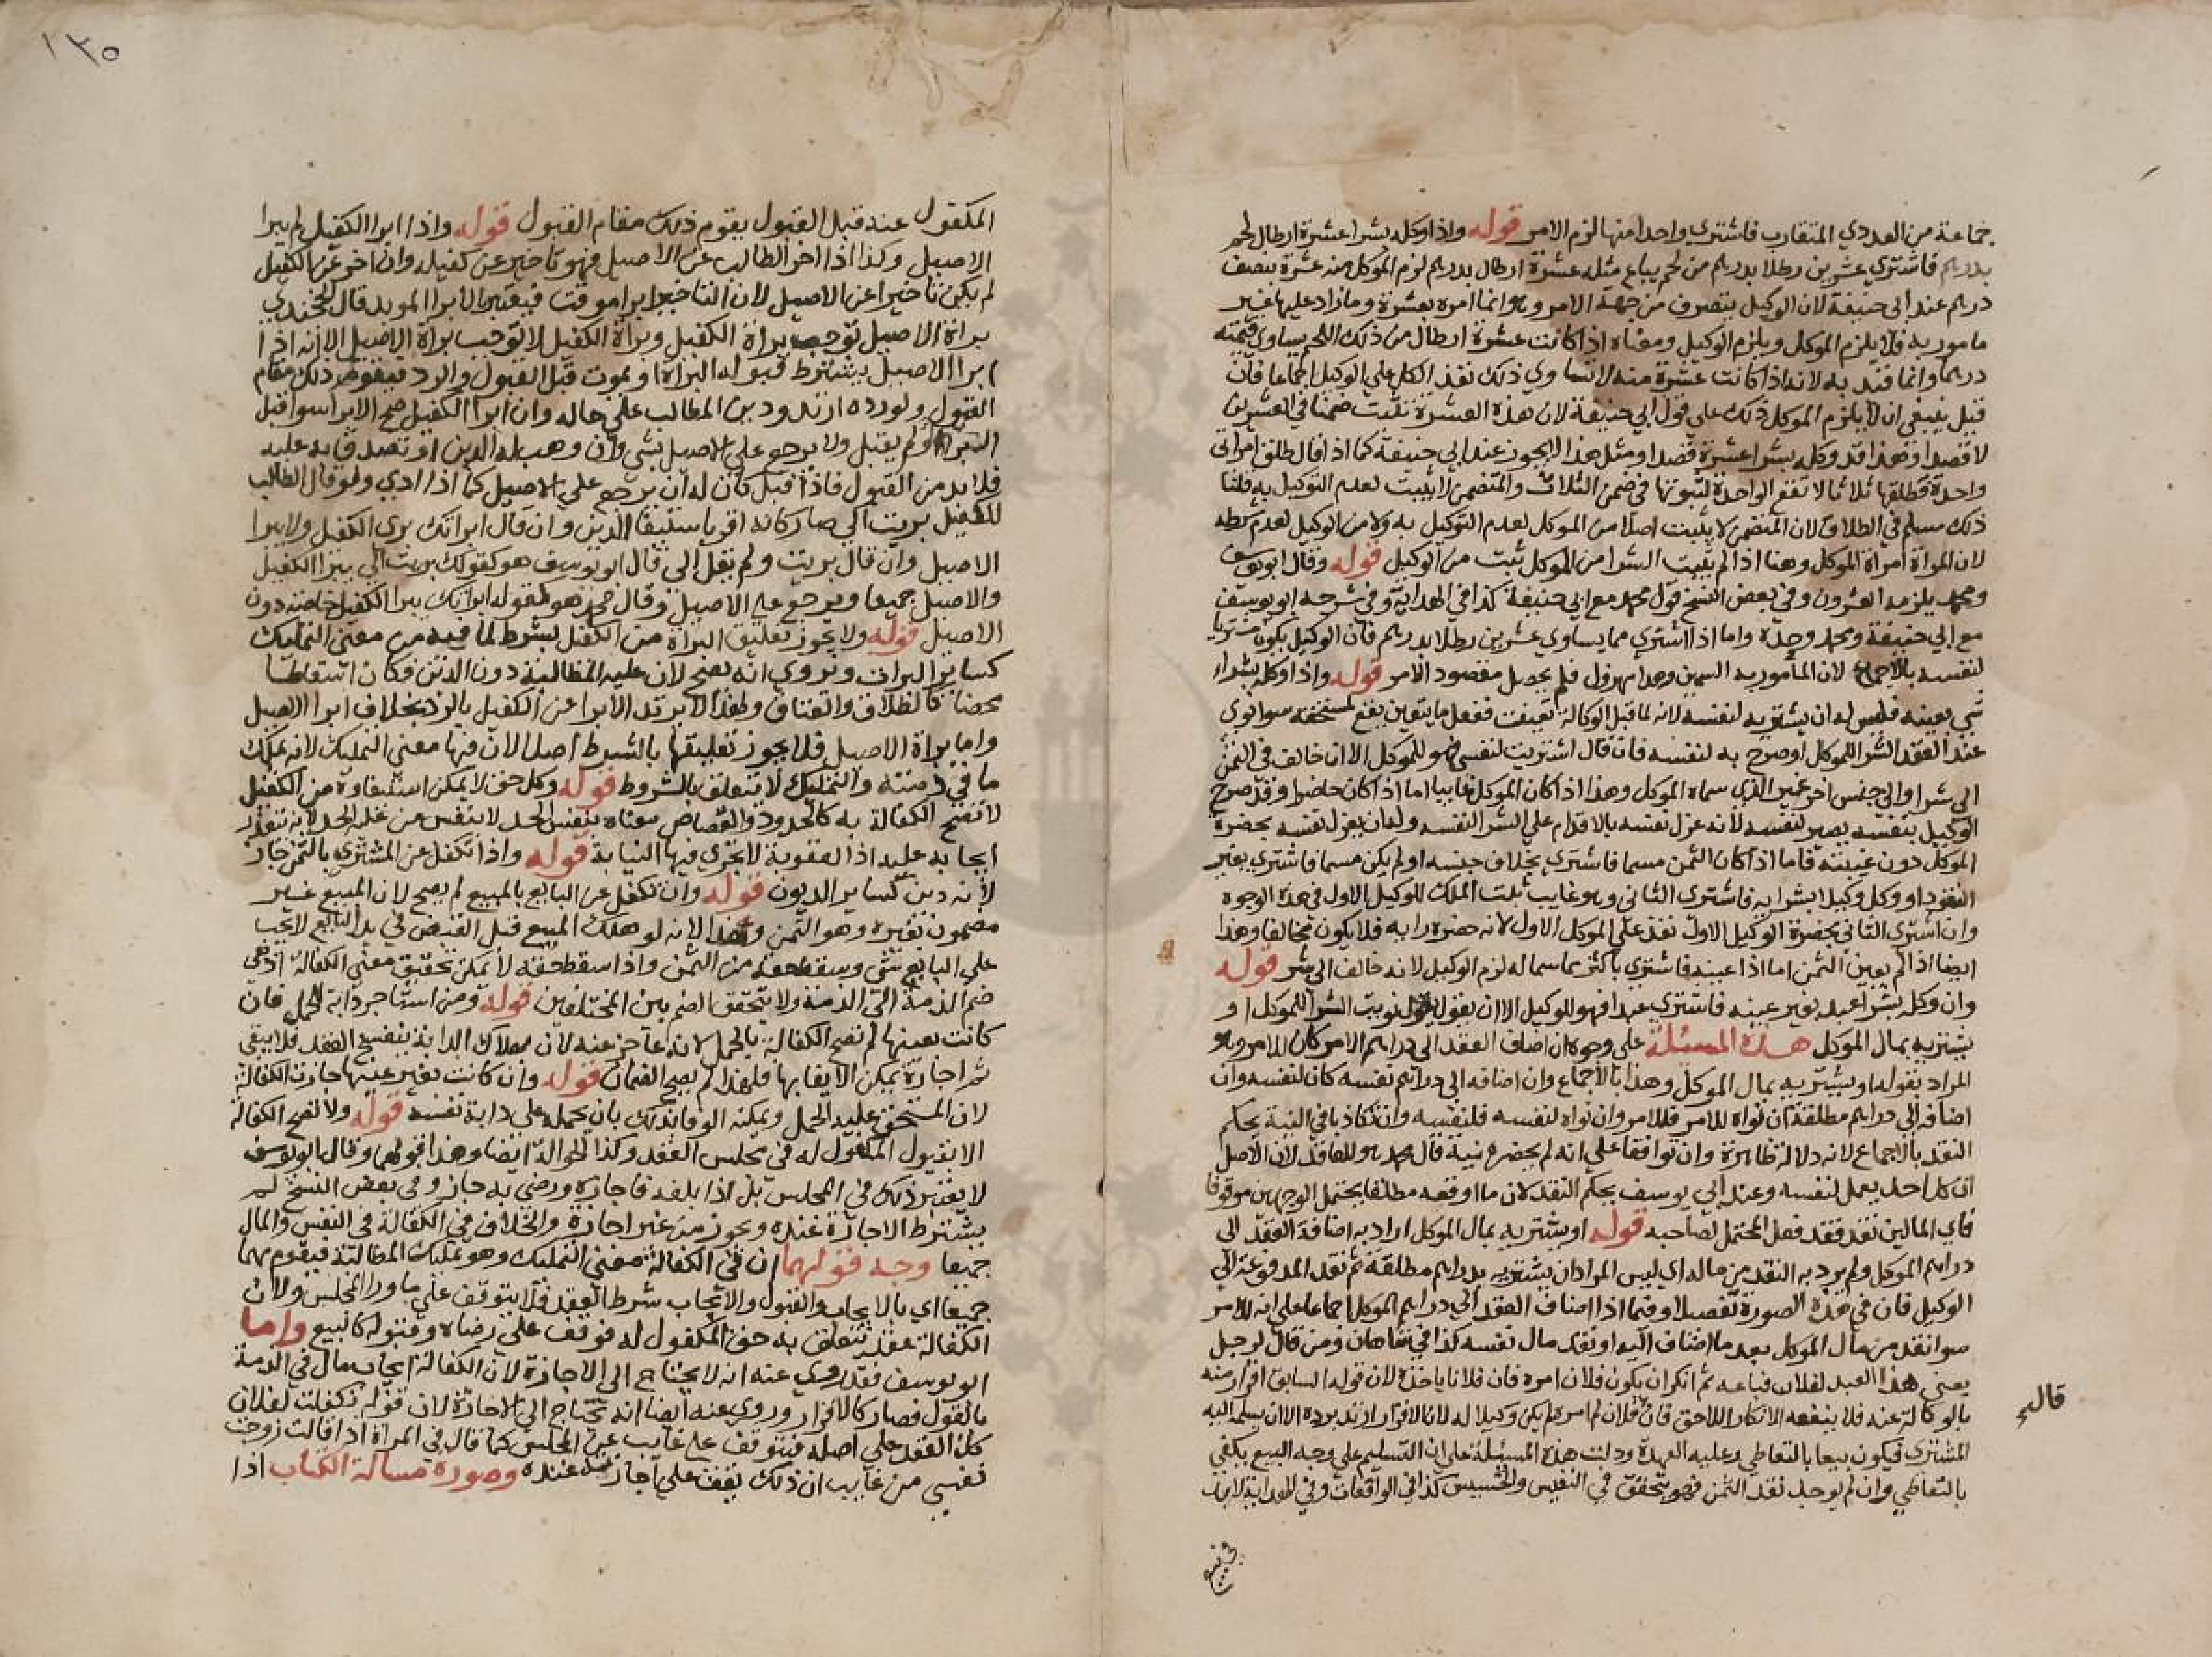 جماعة من العددي المتقارب فاشتري واحدا منها لزم الامر قوله واذا وكله بشرا عشرة ارطال لحم
بدرهم فاشتري عشرين رطلا بدرهم من لحم يباع مثله عشرة ارطال بدرهم لزم الموكل منه عشرة بنصف
درهم عند ابي حنيفة لان الوكيل يتصرف من جهة الامر وهو انما امره بعشرة وما زاد عليها غير
مامور به فلا يلزم الموكل ويلزم الوكيل ومعناه اذا كانت عشرة ارطال من ذلك اللحم يساوي قيمته
درهما وانما قيد به لانه اذا كانت عشرة منه لا تساوي ذلك نفذ الكل علي الوكيل اجماعا فان
قيل ينبغي ان لا يلزم الموكل ذلك علي قول ابي حنيفة لان هذه العشرة تثبت ضمنا في العشرين
لا قصدا وهذا قد وكله بشرا عشرة قصدا ومثل هذا لا يجوز عند ابي حنيفة كما اذا قال طلق امراتي
واحدة فطلقها ثلاثا لا تقع الواحدة لثبوتها في ضمن الثلاث والمتضمن لا يثبت لعدم التوكيل به قلنا
ذلك مسلم في الطلاق لان المتضمن لا يثبت اصلا من الموكل لعدم التوكيل به ولا من الوكيل لعدم شرطه
لان المراة امراة الموكل وهنا اذا لم يثبت الشرا من الموكل ثبت من الوكيل قوله وقال ابو يوسف
ومحمد يلزمه العشرون وفي بعض النسخ قول محمد مع ابي حنيفة كذا في الهداية وفي شرحه ابو يوسف
مع ابي حنيفة ومحمد وحده واما اذا اشتري مما يساوي عشرين رطلا بدرهم فان الوكيل يكون مشتريا
لنفسه بالاجماع لان المامور به السمين وهذا مهزول فلم يحصل مقصود الامر قوله واذا وكله بشراء
شي بعينه فليس له ان يشتريه لنفسه لانه لما قبل الوكالة تعينت ففعل ما يتعين يقع لمستحقه سوا نوي
عند العقد الشرا للموكل او صرح به لنفسه فان قال اشتريت لنفسي فهو للموكل الا ان خالف في الثمن
الي شر او الي جنس اخر غير الذي سماه الموكل وهذا اذا كان الموكل غايبا اما اذا كان حاضرا وقد صرح
الوكيل بنفسه يصير لنفسه لانه عزل نفسه بالاقدام علي الشرا لنفسه وله ان يعزل نفسه بحضرة
الموكل دون غيبته فاما اذا كان الثمن مسما فاشتري بخلاف جنسه او لم يكن مسما فاشتري بغير
النقود او وكل وكيلا بشرايه فاشتري الثاني وهو غايب ثبت الملك للوكيل الاول في هذه الوجوه
وان اشتري الثاني بحضرة الوكيل الاول نفذ علي الموكل الاول لانه حضره رايه فلا يكون مخالفا وهذا
ايضا اذا لم يعين الثمن اما اذا عينه فاشتري باكثر مما سما له لزم الوكيل لانه خالف الي شر قوله
وان وكله بشرا عبد بغير عينه فاشتري عبدا فهو للوكيل الا ان يقول نويت الشرا للموكل او
يشتريه بمال الموكل هذه المسئلة علي وجوه ان اضاف العقد الي دراهم الامر كان للامر وهو
المراد بقوله او يشتريه بمال الموكل وهذا بالاجماع وان اضافه الي دراهم نفسه كان لنفسه وان
اضافه الي دراهم مطلقة فان نواه للامر فللامر وان نواه لنفسه فلنفسه وان تكاذبا في النية يحكم
النقد بالاجماع لانه دلالة ظاهرة وان توافقا علي انه لم يحضره نية قال محمد هو للعاقد لان الاصل
ان كل احد يعمل لنفسه وعند ابي يوسف يحكم النقد لان ما اوقعه مطلقا يحتمل الوجهين موقوفا
فاي المالين نقد فقد فعل المحتمل لصاحبه قوله او يشتريه بمال الموكل اراد به اضافة العقد الي
دراهم الموكل ولم يرد به النقد من ماله اي ليس المراد ان يشتريه بدراهم مطلقة ثم نقد المدفوعة الي
الوكيل فان في هذه الصورة تفصيلا وفيما اذا اضاف العقد الي دراهم الموكل اجماعا علي انه للامر
سوا نقد من مال الموكل بعد ما اضاف اليه او نقد مال نفسه كذا في شاهان ومن قال لرجل
يعني هذا العبد لفلان فباعه ثم انكر ان يكون فلان امره فان فلانا ياخذه لان قوله السابق اقرار منه
بالوكالة عنه فلا ينفعه الانكار اللاحق فان قال فلان لم امره لم يكن وكيلا له لان الاقرار ارتد برده الا ان يسلمه اليه
المشتري فيكون بيعا بالتعاطي وعليه العهدة ودلت هذه المسئلة علي ان التسليم علي وجه البيع يكفي
بالتعاطي وان لم يوجد نقد الثمن فهو يتحقق في النفيس والخسيس كذا في الواقعات وفي الهداية لان
١٣٥
المكفول عنه قبل القبول يقوم ذلك مقام القبول قوله واذا ابرا الكفيل لم يبرا
الاصيل وكذا اذا اخر الطالب عن الاصيل فهو تاخير عن كفيله وان اخر عن الكفيل
لم يكن تاخيرا عن الاصيل لان التاخير ابرا موقت فيعتبر بالابرا الموبد قال الخجندي
براة الاصيل توجب براة الكفيل وبراة الكفيل لا توجب براة الاصيل الا انه اذا
ابرا الاصيل يشترط قبوله البراة او يموت قبل القبول والرد فيقوم ذلك مقام
القبول ولو رده ارتد ودين المطالب علي حاله وان ابرا الكفيل صح الابرا سوا قبل
البراة او لم يقبل ولا يرجع علي الاصيل بشي وان وهب له الدين او تصدق به عليه
فلا بد من القبول فاذا قبل كان له ان يرجع علي الاصيل كما اذا ادي ولو قال الطالب
للكفيل بريت الي صار كانه اقر باستيفا الدين وان قال ابراتك بري الكفيل ولا يبرا
الاصيل وان قال بريت ولم يقل الي قال ابو يوسف هو كقولك بريت الي يبرا الكفيل
والاصيل جميعا ويرجع علي الاصيل وقال محمد هو كقوله ابراتك يبرا الكفيل خاصة دون
الاصيل قوله ولا يجوز تعليق البراة من الكفيل بشرط لما فيه من معني التمليك
كساير البرات ويروي انه يصح لان عليه المطالبة دون الدين وكان اسقاطا
محضا كالطلاق والعتاق ولهذا لا يرتد الابرا عن الكفيل بالرد بخلاف ابرا الاصيل
واما براة الاصيل فلا يجوز تعليقها بالشرط اصلا لان فيها معني التمليك لانه تملك
ما في ذمته والتمليك لا يتعلق بالشروط قوله وكل حق لا يمكن استيفاوه من الكفيل
لا تصح الكفالة به كالحدود والقصاص معناه بنفس الحد لا بنفس من عليه الحد لانه يتعذر
ايجابه عليه اذ العقوبة لا يجزي فيها النيابة قوله واذا تكفل عن المشتري بالثمن جاز
لانه دين كساير الديون قوله وان تكفل عن البايع بالمبيع لم يصح لان المبيع غير
مضمون بغيره وهو الثمن وهذا لانه لو هلك المبيع قبل القبض في يد البايع لا يجب
علي البايع شي ويسقط حقه من الثمن واذا سقط حقه لا يمكن تحقيق معني الكفالة اذ هي
ضم الذمة الي الذمة ولا يتحقق الضم بين المختلفين قوله ومن استاجر دابة لحمل فان
كانت بعينها لم تصح الكفالة بالحمل لانه عاجز عنه لان بهلاك الدابة ينفسخ العقد فلا يبقي
ثم اجارة يمكن الايفا بها فلهذا لم يصح الضمان قوله وان كانت بغير عينها جازت الكفالة
لان المستحق عليه الحمل ويمكنه الوفا بذلك بان يحمله علي دابة نفسه قوله ولا تصح الكفالة
الا بقبول المكفول له في مجلس العقد وكذا الحوالة ايضا وهذا قولهما وقال ابو يوسف
لا يعتبر ذلك في المجلس بل اذا بلغه فاجازه ورضي به جاز وفي بعض النسخ لم
يشترط الاجازة عنده ويجوز من غير اجازة والخلاف في الكفالة في النفس والمال
جميعا وجه قولهما ان في الكفالة معني التمليك وهو تمليك المطالبة فيقوم بهما
جميعا اي بالايجاب والقبول والايجاب شرط العقد فلا يتوقف علي ما ورا المجلس ولان
الكفالة عقد يتعلق به حق المكفول له فوقف علي رضاه وقبوله كالبيع واما
ابو يوسف فقد روي عنه انه لا يحتاج الي الاجازة لان الكفالة ايجاب مال في الذمة
بالقول فصار كالاقرار وروي عنه ايضا انه يحتاج الي الاجازة لان قوله تكفلت لفلان
كل العقد علي اصله فيتوقف علي غايب عن المجلس كما قال في المراة اذا قالت زوجت
نفسي من غايب ان ذلك يقف علي اجازته عنده وصورة مسالة الكتاب اذا